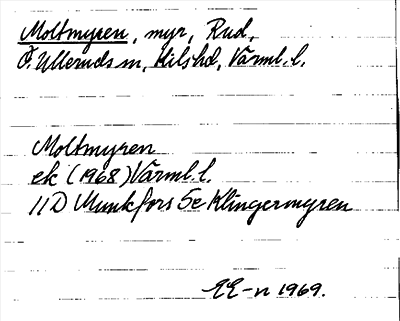 Moltmyren, myr, Rud,
Ö. Ulleruds sn, Kils hd, Värml. l.
Moltmyren
ek (1968) Värml. l.
11D Munkfors 5e Klingermyren
EE-n 1969.